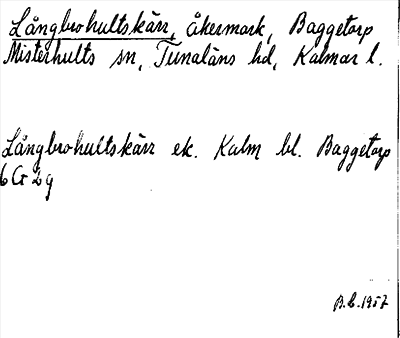 Långbrohultskärr, åkermark, Baggetorp
Misterhults sn, Tunaläns hd, Kalmar l.
Långbrohultskärr ek. Kalm bl. Baggetorp
6 G 2 g
B.L. 1957